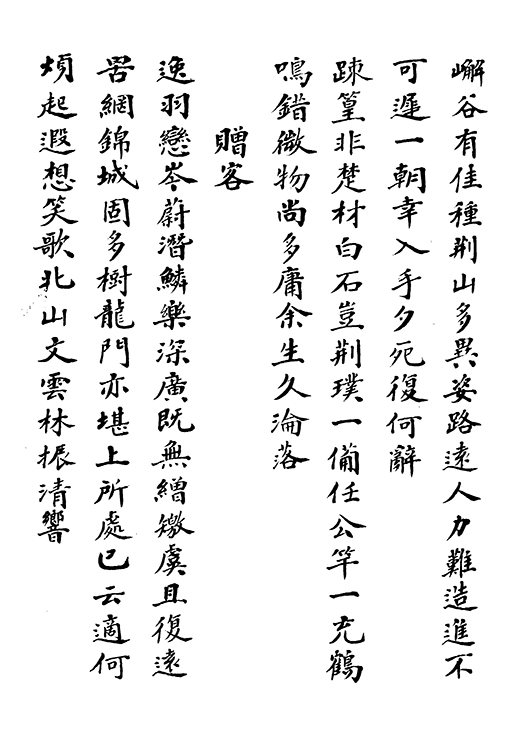 嶰谷有佳種荆山多異姿路遠人力難造進不
可遲一朝幸入手夕死復何辭
踈篁非楚材白石豈荆璞一備任公竿一充鶴
鳴錯微物尚多庸余生久淪落
贈客
逸羽戀岑蔚潛鱗樂深廣既無繒繳虞且復遠
罟網錦城固多樹龍門亦堪上所處已云適何
煩起遐想笑歌北山文雲林振清響